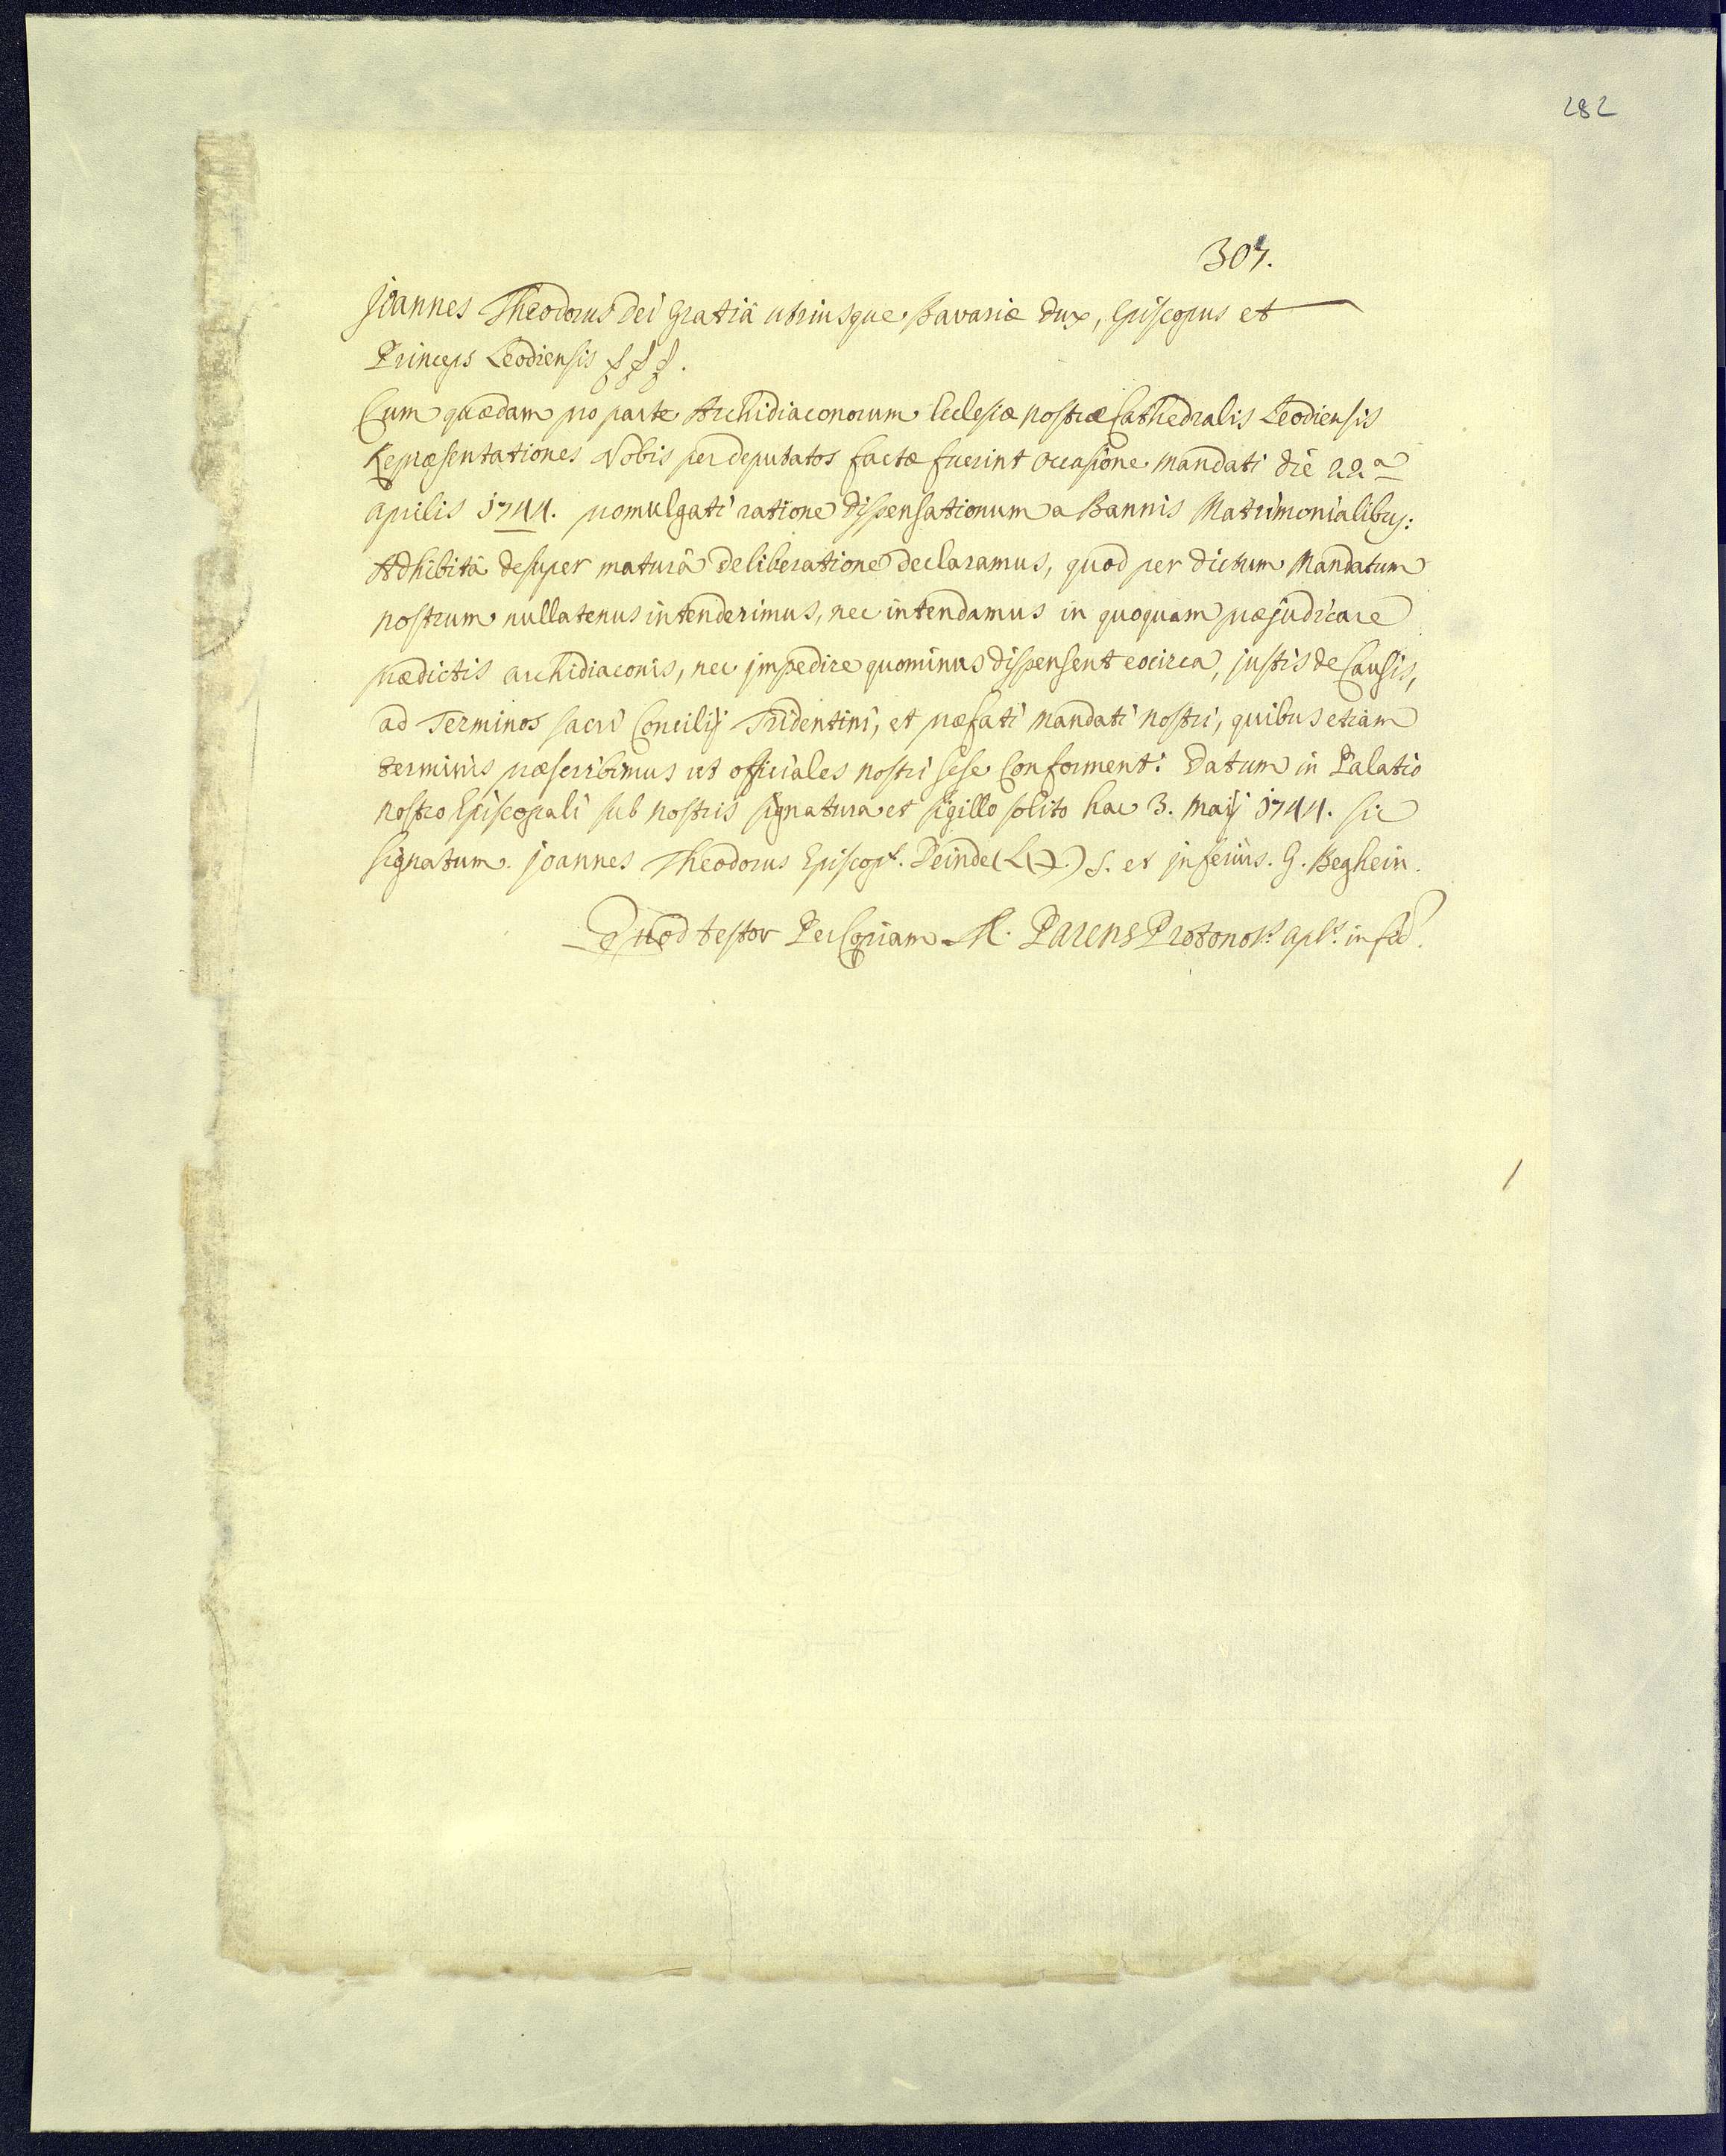 282
307.
Joannes Theodorus Dei Gratiâ utriusque Bavariæ Dux, Episcopus et
Princeps Leodiensis
Cum quædam pro parte Archidiaconorum Ecclesiæ nostræ Cathedralis Leodiensis
Repræsentationes Nobis per deputatos factæ fuerint occasione Mandati die 22.a
aprilis 1744. promulgati ratione dispensationum a Bannis Matrimonialibus:
Adhibitâ desuper maturâ deliberatione declaramus, quod per dictum Mandatum
nostrum nullatenus intenderimus, nec intendamus in quoquam præjudicare
prædictis archidiaconis, nec jmpedire quominus dispensent eocirca, justis de Causis,
ad Terminos sacri Concilij Tridentini, et præfati Mandati nostri, quibus etiam
terminis præscribimus ut officiales nostri sese Conforment. Datum in Palatio
nostro Episcopali sub nostris signatura et sigillo solito hac 3. Maij 1744. sic
signatum. Joannes Theodorus Episcops. Deinde (L( ).) S. et jnferius. G. Beghein.
Quod testor Per Copiam M. Parens Protonots. apls. in fid